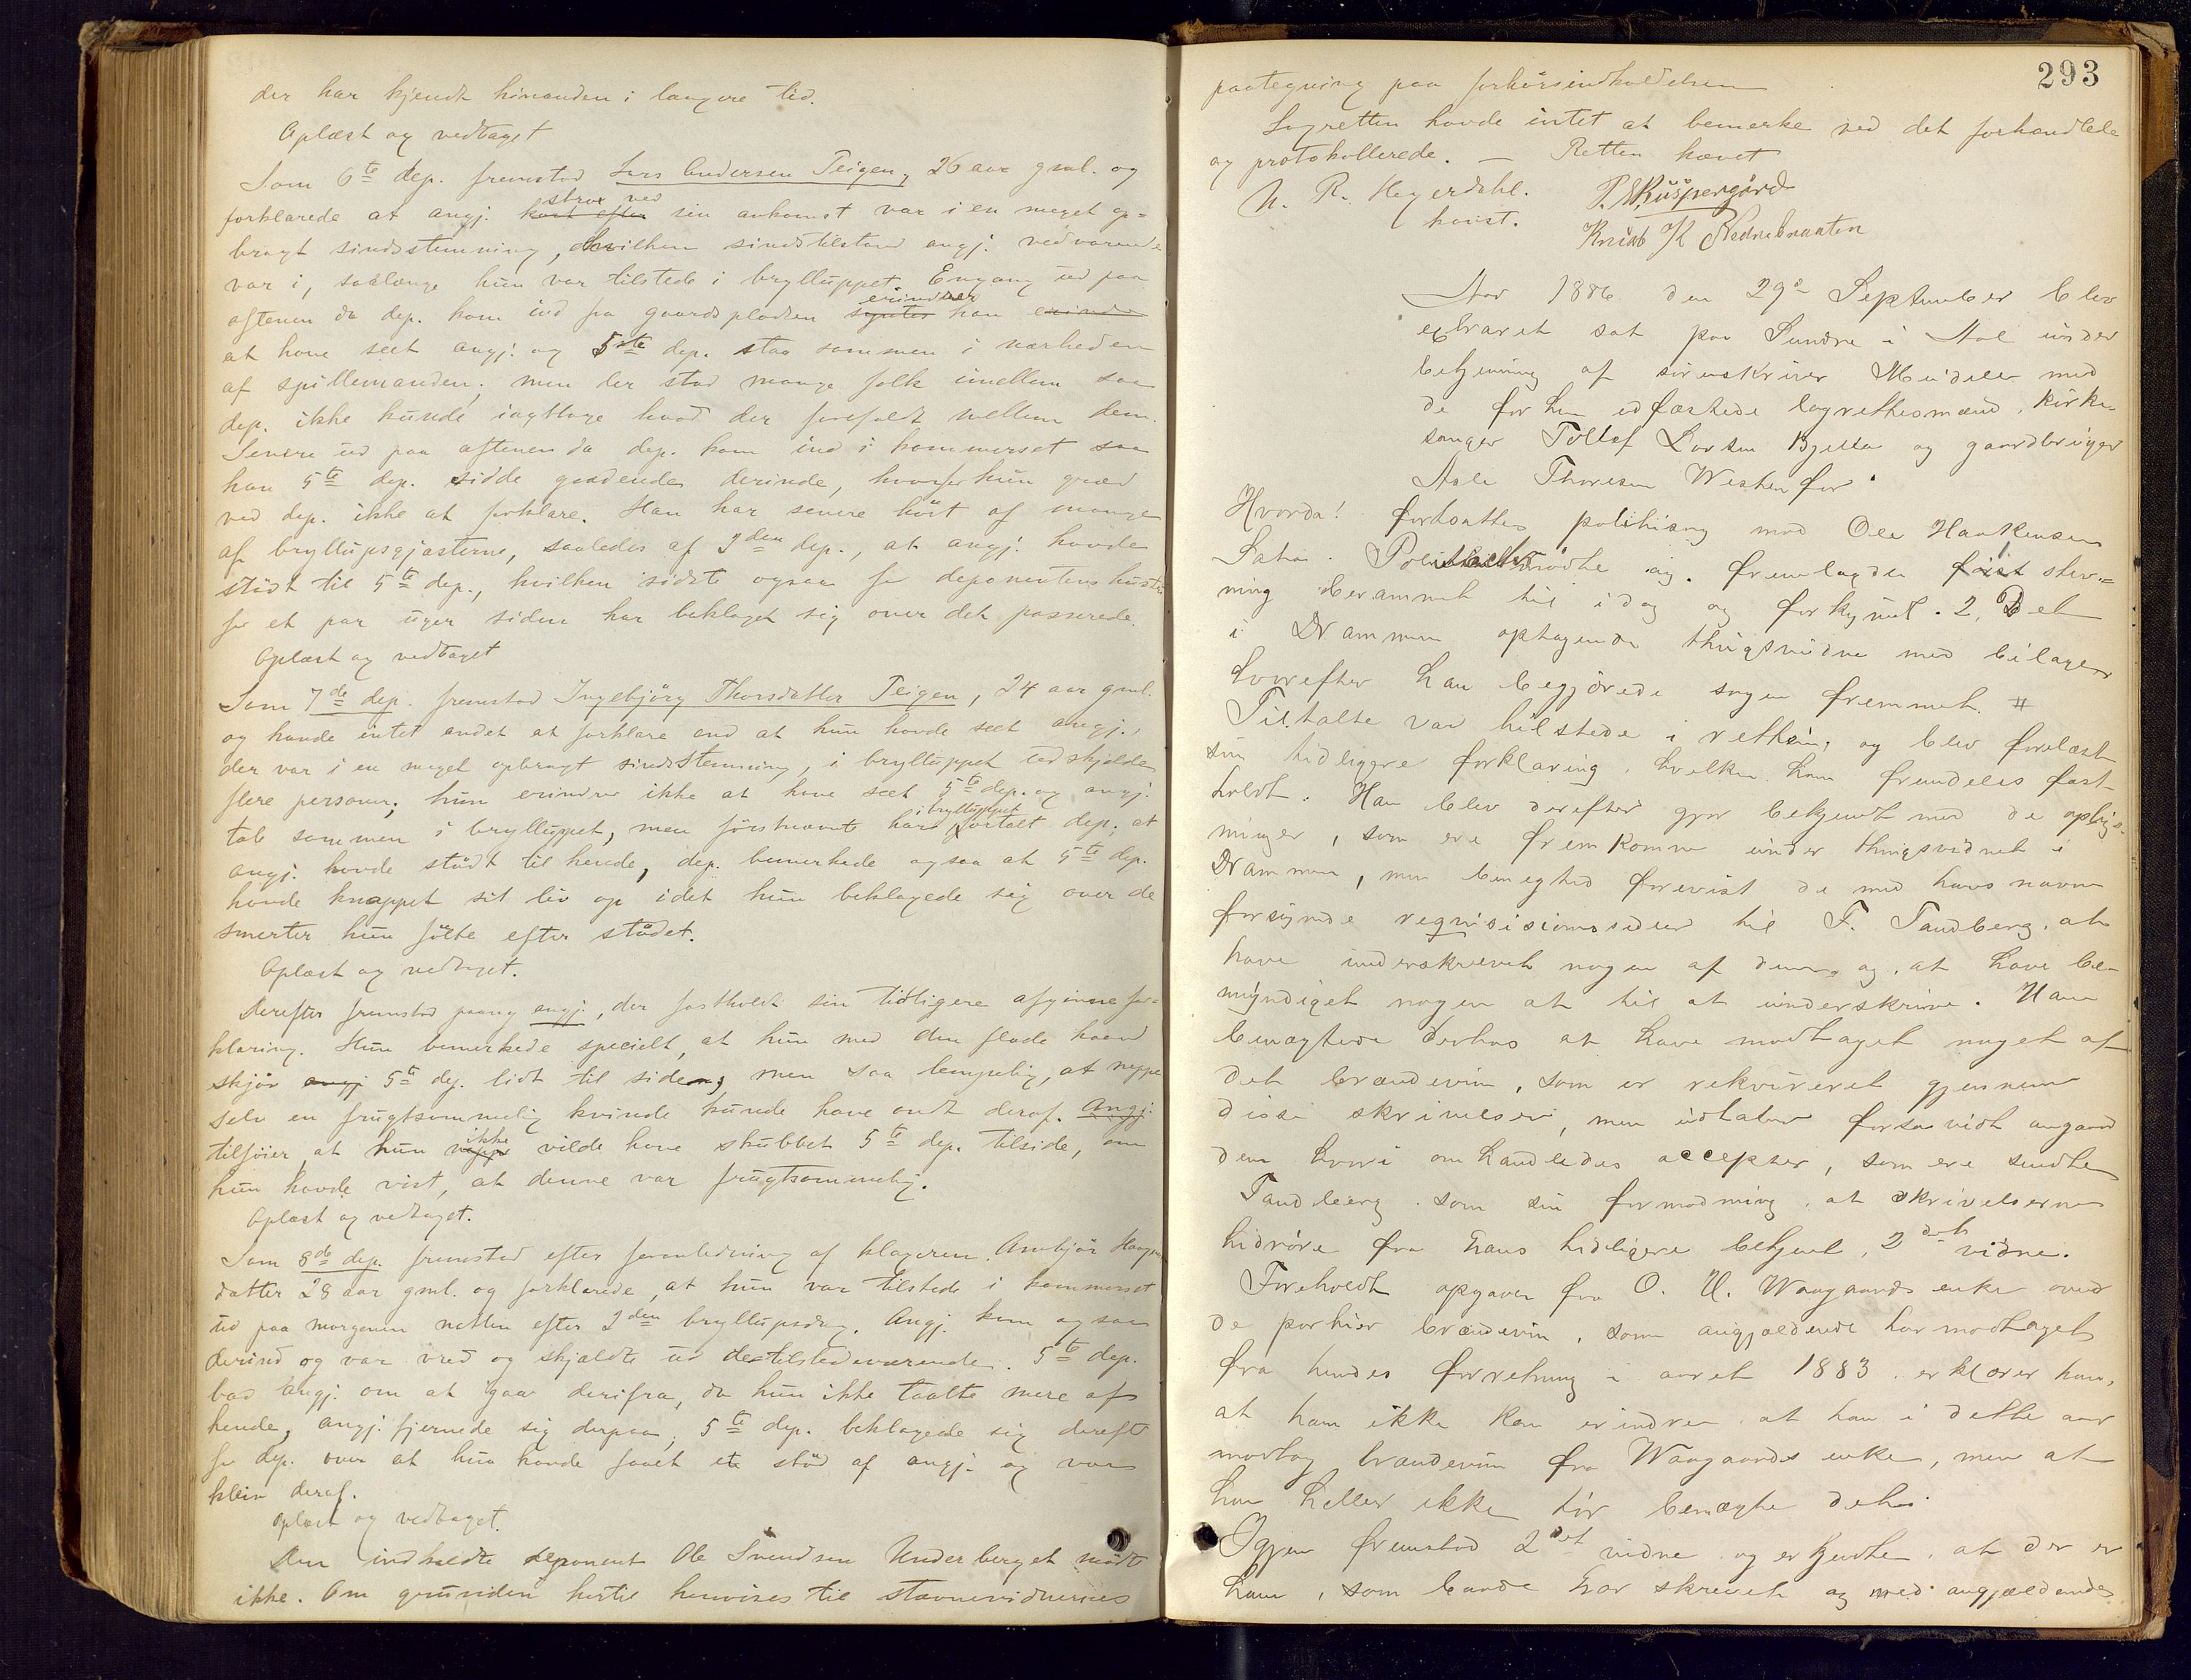 der har kjendt hinanden i længere tid.
Oplæst og vedtaget
Som 6te dep. fremstod Lars Andersen Teigen, 26 aar gml. og
forklarede at angj. kort efter strax ved sin ankomst var i en meget op=
bragt sindsstemning, hvilken sindstilstand angj. vedvarende
var i, saalænge hun var tilstede i brylluppet. Engang ud paa
aftenen da dep. kom ind fra gaardspladsen syntes erindrer han erindre
at have seet angj. og 5te dep. staa sammen i nærheden
af spillemanden; men der stod mange folk imellem saa
dep. ikke kunde iagttage hvad der forefaldt mellem dem.
Senere ud paa aftenen da dep. kom ind i kammerset saa
han 5te dep. sidde grædende derinde, hvorfor hun græd
ved dep. ikke at forklare. Han har senere hørt af mange
af bryllupsgjæsterne, saaledes af 3den dep., at angj. havde
stødt til 5te dep., hvilken sidste ogsaa for deponentens hustru
for et par uger siden har beklaget sig over det passerede.
Oplæst og vedtaget
Som 7de dep. fremstod Ingebjörg Thorsdatter Teigen, 24 aar gml.
og havde intet andet at forklare end at hun havde seet angj.,
der var i en meget opbragt sindsstemning, i brylluppet udskjelde
flere personer; hun erindrer ikke at have seet 5te dep. og angj.
tale sammen i brylluppet, men førstnævnte har i brylluppet fortalt dep. at
angj. havde stødt til hende, dep. bemerkede ogsaa at 5te dep.
havde knappet sit liv op idet hun beklagede sig over de
smerter hun følte efter stødet.
Oplæst og vedtaget.
Derefter fremstod paany angj., der fastholdt sin tidligere afgivne for=
klaring. Hun bemerkede specielt, at hun med den flade haand
skjøv angj 5te dep. lidt til siden, men saa lempelig, at neppe
selv en frugtsommelig kvinde kunde have ondt deraf. Angj.
tilføier, at hun neppe ikke vilde have skubbet 5te dep. tilside, om
hun havde vist, at denne var frugtsommelig.
Oplæst og vedtaget.
Som 8de dep. fremstod efter foranledning af klageren Annbjør
datter 28 aar gml. og forklarede, at hun var tilstede i kammerset
ud paa morgenen natten efter 2den bryllupsdag. Angj. kom ogsaa
derind og var vred og skjældte ud de tilstedeværende. 5te dep.
bad angj. om at gaa derifra, da hun ikke taalte mere af
hende, angj. fjernede sig derpaa; 5te dep. beklagede sig dereft
for dep. over at hun havde faaet et stød af angj. og var
klein deraf.
Oplæst og vedtaget.
Den indkaldte deponent Ole Svendsen Underberget mødt
ikke. Om grunden hertil henvises til stævnevidnernes
293
paategning paa forhørsindkaldelsen
Lagretten havde intet at bemerke ved det forhandlede
og protokollerede. — Retten hævet
N. R. Heyerdahl.
const.
Knud K
Aar 1886 den 29de September blev
extraret sat paa Sundre i Aal under
betjening af sorenskriver Meidell med
de for ham edfæstede lagrettesmænd, kirke=
sanger Tollef Larsen Bjella og gaardbruger
Asle Thoresen Westenfor.
Hvorda! fortsattes politisag mod Ole Haakensen
Sata. Politiet mødte og fremlagde først stev=
ning berammet til idag og forkyndt. 2, Det
i Drammen optagende thingsvidne med bilager
hvorefter han begjærede sagen fremmet. #
Tiltalte var tilstede i retten, og blev forelæst
sin tidligere forklaring, hvilken han fremdeles fast-
holdt. Han blev derefter gjor bekjendt med de oplys-
ninger, som ere fremkomne under thingsvidnet i
Drammen, men benegted forevist de med hans navn
forsynde reqvisisionssedler til F. Sandberg, at
have underskrevet nogen af dem, og at have be-
myndiget nogen at til at underskrive. Han
benægtede derhos at have modtaget noget af
det brændevin, som er rekvireret gjennem
disse skrivelser, men udtaler forsaavidt angaar
den hvori omhandledes accepter, som ere sendte
Sandberg som sin formodning, at skrivelserne
hidrøre fra hans tidligere bekjent, 2det vidne.
Foreholdt opgaver fra O. H. Waagaards enke over
de partier brændevin, som angjældende har modtaget
fra hendes forretning i aaret 1883 erklærer han,
at han ikke kan erindre at han i dette aar
modtog brændevin fra Waagaards enke, men at
han heller ikke tør benægte det.
Igjen fremstod 2det vidne og erkjendte, at der er
ham, som baade har skrevet og med angjældendes